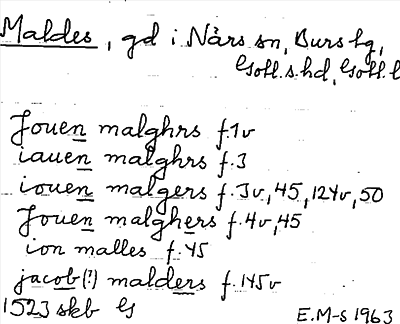 Maldes, gd i Närs sn, Burs tg,
Gotl. s. hd, Gotl. l
Jouen malghrs f.1v
iauen malghrs f.3
iouen malgers f.3v, 45, 124v, 50
Jouen malghers f.4v, 45
ion malles f.45
jacob(?) malders f.145v
1523 skb G
E.M-s 1963